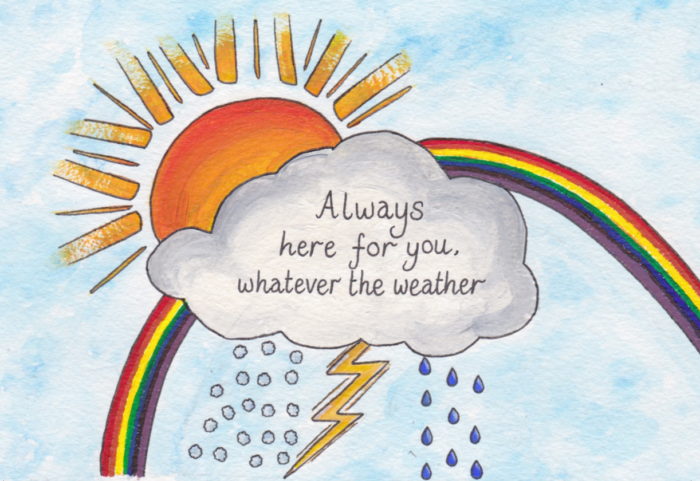 Always
here for you,
whatever the weather